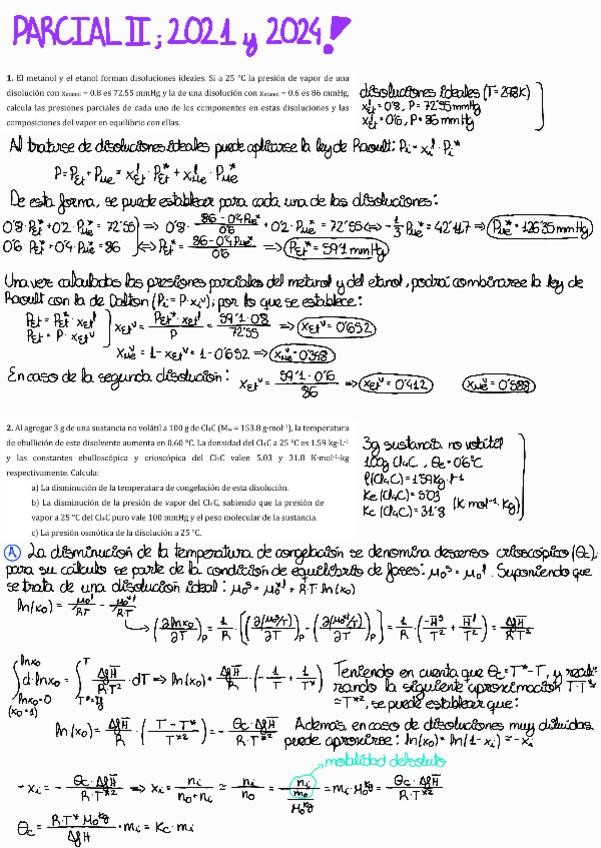 PARCIAL II ; 2021 y 2024!
1. El metanol y el etanol forman disoluciones ideales. Si a 25 °C la presión de vapor de una
disolución con x_etanol = 0.8 es 72.55 mmHg y la de una disolución con x_etanol = 0.6 es 86 mmHg,
calcula las presiones parciales de cada uno de los componentes en estas disoluciones y las
composiciones del vapor en equilibrio con ellas.
disoluciones ideales (T=298K)
x_Et^l = 0'8, P = 72'55 mmHg
x_Et^l = 0'6, P = 86 mmHg
Al tratarse de disoluciones ideales puede aplicarse la ley de Raoult: Pi = xi^l · Pi*
P = P_Et + P_Me = x_Et^l · P_Et* + x_Me^l · P_Me*
De esta forma, se puede establecer para cada una de las disoluciones:
0'8 · P_Et* + 0'2 · P_Me* = 72'55 ⇒ 0'8 · (86 - 0'4 P_Me*)/0'6 + 0'2 · P_Me* = 72'55 ⇔ -1/3 P_Me* = 42'117 ⇒ P_Me* = 126'35 mmHg
0'6 · P_Et* + 0'4 · P_Me* = 86 ⇔ P_Et* = (86 - 0'4 P_Me*)/0'6 ⇒ P_Et* = 59'1 mmHg
Una vez calculadas las presiones parciales del metanol y del etanol, podrá combinarse la ley de
Raoult con la de Dalton (Pi = P · xi^v); por lo que se establece:
P_Et = P_Et* · x_Et^l
P_Et = P · x_Et^v
x_Et^v = (P_Et* · x_Et^l)/P = (59'1 · 0'8)/72'55 ⇒ x_Et^v = 0'652
x_Me^v = 1 - x_Et^v = 1 - 0'652 ⇒ x_Me^v = 0'348
En caso de la segunda disolución: x_Et^v = (59'1 · 0'6)/86 ⇒ x_Et^v = 0'412 x_Me^v = 0'588
2. Al agregar 3 g de una sustancia no volátil a 100 g de Cl₄C (M_w = 153.8 g·mol⁻¹), la temperatura
de ebullición de este disolvente aumenta en 0.60 °C. La densidad del Cl₄C a 25 °C es 1.59 kg·L⁻¹
y las constantes ebulloscópica y crioscópica del Cl₄C valen 5.03 y 31.8 K·mol⁻¹·kg
respectivamente. Calcula:
a) La disminución de la temperatura de congelación de esta disolución.
b) La disminución de la presión de vapor del Cl₄C, sabiendo que la presión de
vapor a 25 °C del Cl₄C puro vale 100 mmHg y el peso molecular de la sustancia.
c) La presión osmótica de la disolución a 25 °C.
3g sustancia no volátil
100g Cl₄C, θe = 0'6°C
ρ(Cl₄C) = 1'59 kg·l⁻¹
Ke (Cl₄C) = 5'03
Kc (Cl₄C) = 31'8
(K·mol⁻¹·kg)
A La disminución de la temperatura de congelación se denomina descenso crioscópico (θc);
para su cálculo se parte de la condición de equilibrio de fases: μ₀^s = μ₀^l. Suponiendo que
se trata de una disolución ideal: μ₀^s = μ₀*^l + R·T·ln(x₀)
ln(x₀) = μ₀^l/RT - μ₀*^l/R·T
→ (∂lnx₀/∂T)_P = 1/R · [(∂(μ₀^s/T)/∂T)_P - (∂(μ₀*^l/T)/∂T)_P] = 1/R · (-H̄^s/T² + H̄^l/T²) = ΔfH̄/R·T²
∫_{lnx₀=0 (x₀=1)}^{lnx₀} d·lnx₀ = ∫_{T*=Tf}^{T} ΔfH̄/R·T² · dT ⇒ ln(x₀) = ΔfH̄/R · (-1/T + 1/T*)
Teniendo en cuenta que θc = T* - T, y reali-
zando la siguiente aproximación T·T* ≈
= T*², se puede establecer que:
ln(x₀) = ΔfH̄/R · (T - T*/T*²) = - θc·ΔfH̄/R·T*²
Además, en caso de disoluciones muy diluidas
puede aproximarse: ln(x₀) = ln(1 - xi) ≈ -xi
molalidad del soluto
- xi = - θc·ΔfH̄/R·T*² ⇒ xi = ni/(n₀+ni) ≈ ni/n₀ = ni/(m₀/M₀^kg) = mi·M₀^kg = θc·ΔfH̄/R·T*²
θc = R·T*²·M₀^kg/ΔfH̄ · mi = Kc·mi